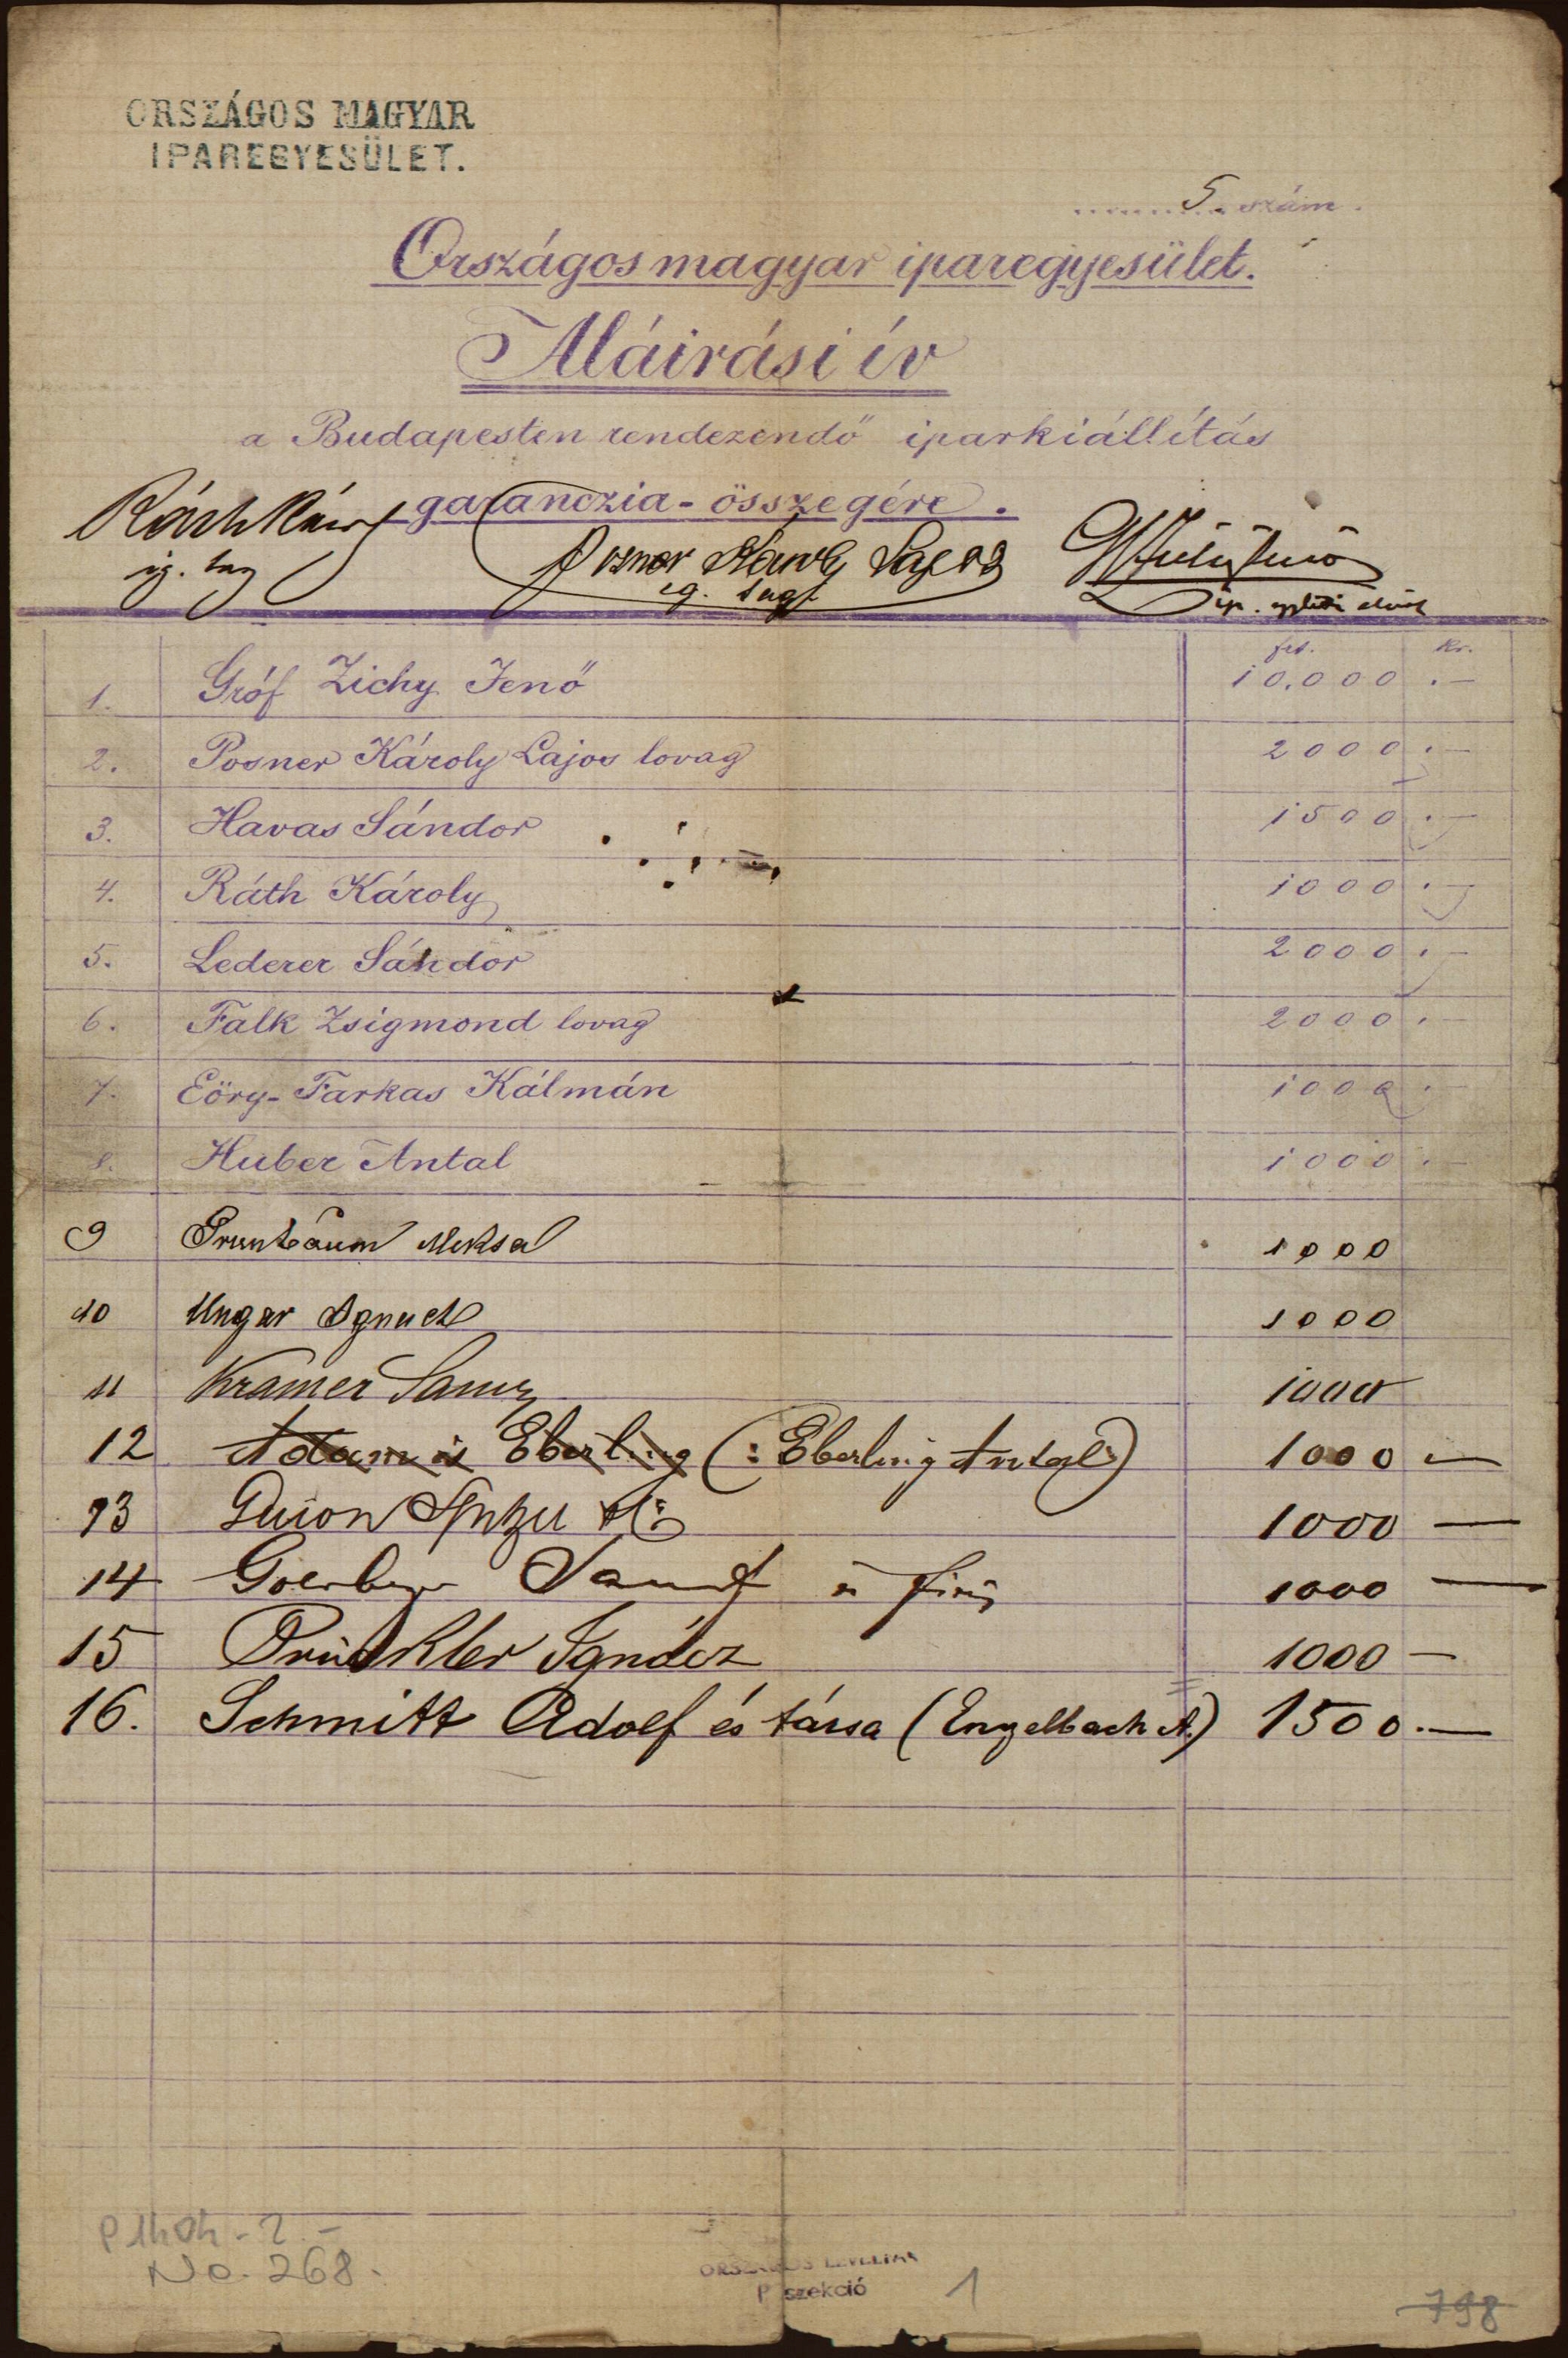 ORSZÁGOS MAGYAR
IPAREGYESÜLET.
5. szám.
Országos magyar iparegyesület.
Aláirási ív
a Budapesten rendezendő iparkiállítás
garanczia-összegére.
Ráth Károly
ig. tag
Posner Károly Lajos
ig. tag
Gf Zichy Jenő
ip. egyleti elnök
frt. kr.
1. Gróf Zichy Jenő 10,000 . —
2. Posner Károly Lajos lovag 2000 . —
3. Havas Sándor 1500 . —
4. Ráth Károly 1000 . —
5. Lederer Sándor 2000 . —
6. Falk Zsigmond lovag 2000 . —
7. Eöry-Farkas Kálmán 1000 . —
8. Huber Antal 1000 . —
9 Grünbaum Miksa 1000
10 Ungar Ignacz 1000
11 Kramer Samu 1000
12 Adam és Eberling (: Eberling Antal :) 1000 —
13 Spitzer 1000 —
14 és 1000 —
15 Prückler Ignácz 1000 —
16. Schmitt Adolf és társa (Engelbach A.) 1500 . —
No. 268.
ORSZÁGOS LEVÉLTÁR
P szekció
1
798